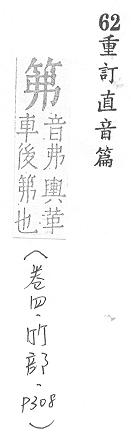 62重訂直音篇
笰
音弗輿革
車後笰也
(卷四·竹部·P308)